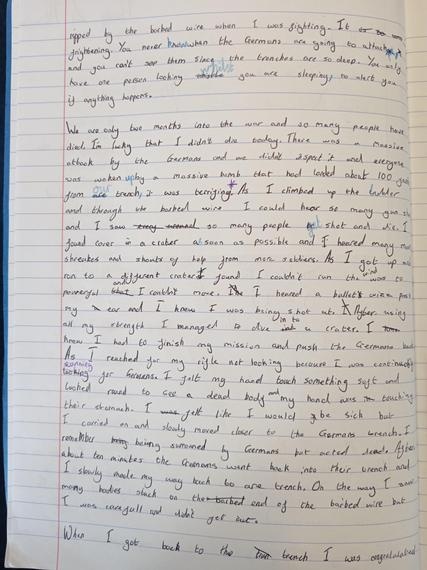 ripped by the barbed wire when I was fighting. It
frightening. You never know when the Germans are going to attack
and you can't see them since the trenches are so deep. You only
have one person looking whilst you are sleeping, to alert you
if anything happens.
We are only two months into the war and so many people have
died. I'm lucky that I didn't die today. There was a massive
attack by the Germans and we didn't expect it and everyone
was woken up by a massive bomb that had landed about 100
from our trench, it was terrifying. As I climbed up the ladder
and through the barbed wire I could hear so many gun
and I saw so many people get shot and die. I
found cover in a crater as soon as possible and I heared many
shreakes and shouts of help from more soldiers. As I got up
ran to a different crater I found I couldn't run the wind was to
powerful and I couldn't move. I heared a bullet past
my ear and I knew I was being shot at. After using
all my strength I managed to dive into a crater. I
knew I had to finish my mission and push the Germans back
As I reached for my rifle not looking because I was
scanning for Germans. I felt my hand touch something soft and
looked round to see a dead body and my hand was touching
their stomach. I felt like I would be sick but
I carried on and slowly moved closer to the Germans trench. I
remember being surrouned by Germans but acted dead. After
about ten minutes the Germans went back into their trench and
I slowly made my way back to are trench. On the way I saw
many bodies stuck on the end of the barbed wire but
I was carefull and didn't get cut.
When I got back to the trench I was congratulated